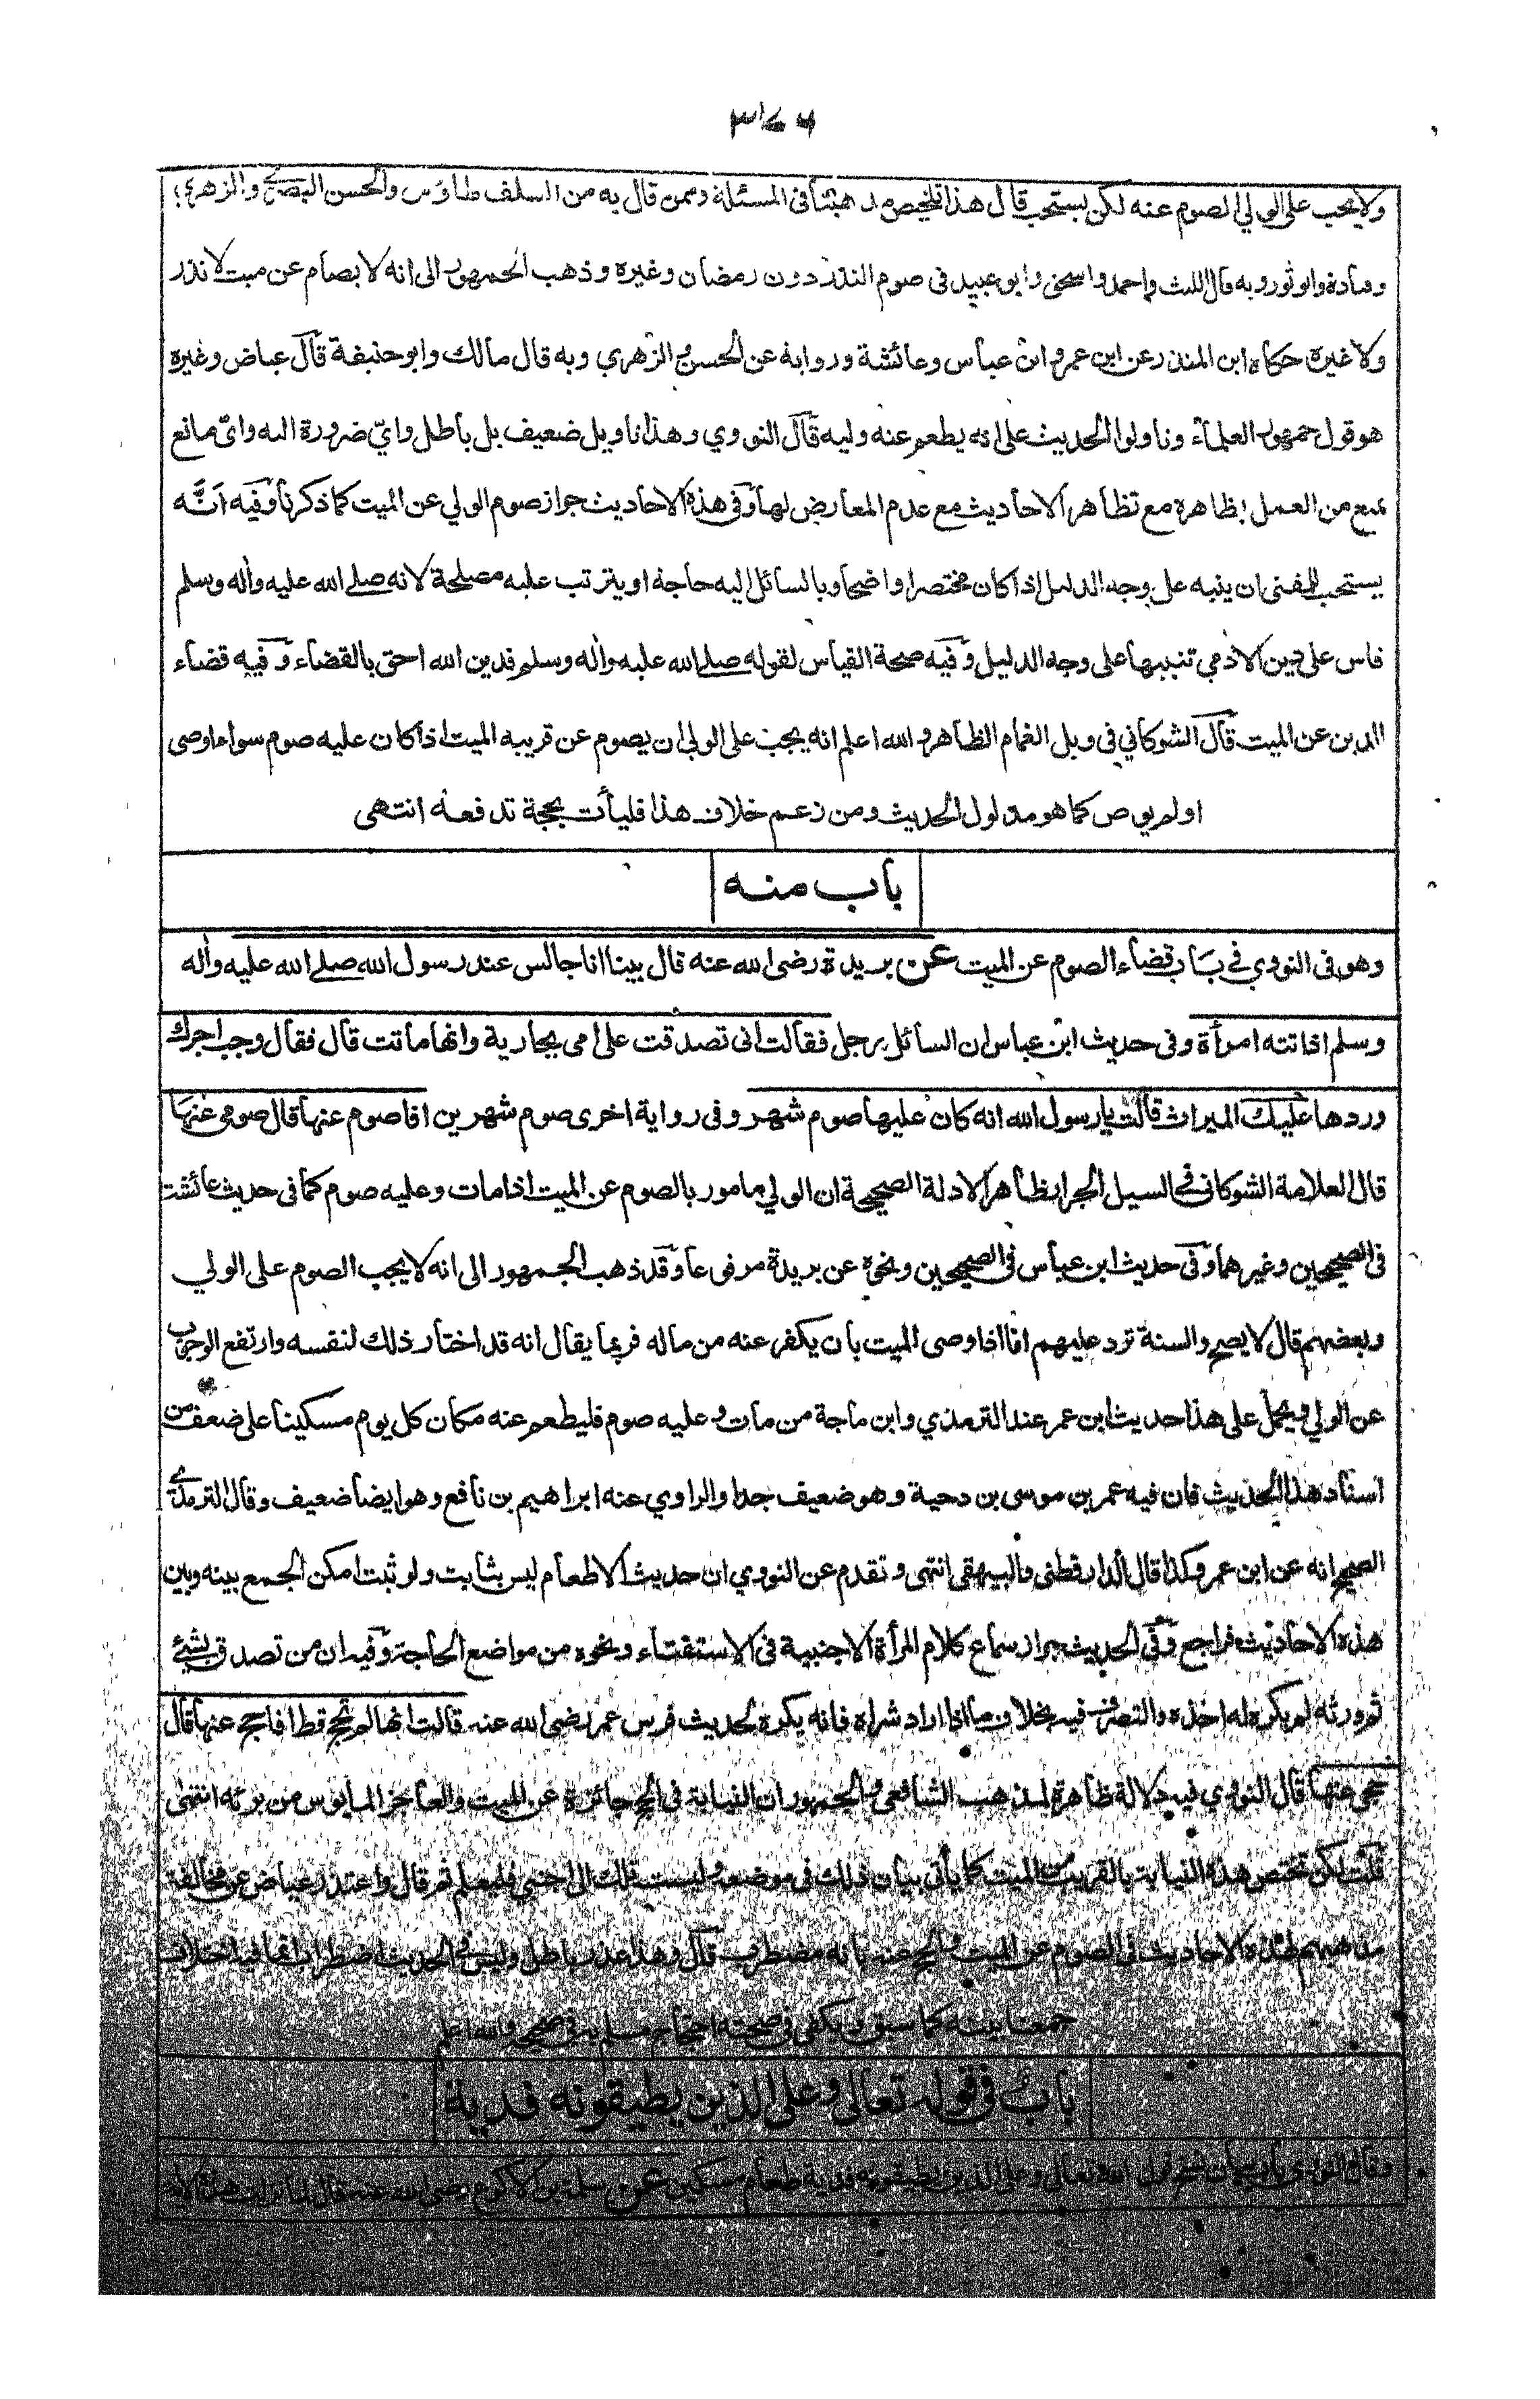 ولا يجب على الولي الصوم عنه لكن يستحب قال هذا تلخيص مذهبنا فى المسئلة وممن قال به من السلف طاؤس والحسن البصري والزهري
وقتادة وابو ثور وبه قال الليث واحمد واسحق وابو عبيد فى صوم النذر دون رمضان وغيره وذهب الجمهور الى انه لا يصام عن ميت لا نذر
ولا غيره حكاه ابن المنذر عن ابن عمر وابن عباس وعائشة ورواية عن الحسن والزهري وبه قال مالك وابو حنيفة قال عياض وغيره
هو قول جمهور العلماء وتاولوا الحديث على انه يطعم عنه وليه قال النووي وهذا تاويل ضعيف بل باطل واي ضرورة اليه واى مانع
يمنع من العمل بظاهره مع تظاهر الاحاديث مع عدم المعارض لها وفى هذه الاحاديث جواز صوم الولي عن الميت كما ذكرنا وفيه انه
يستحب للمفتى ان ينبه على وجه الدليل اذا كان مختصرا واضحا وبالسائل اليه حاجة او يترتب عليه مصلحة لانه صلى الله عليه واله وسلم
قاس على دين الادمي تنبيها على وجه الدليل وفيه صحة القياس لقوله صلى الله عليه واله وسلم فدين الله احق بالقضاء وفيه قضاء
الدين عن الميت قال الشوكاني في وبل الغمام الظاهر والله اعلم انه يجب على الولي ان يصوم عن قريبه الميت اذا كان عليه صوم سواء اوصى
او لم يوص كما هو مدلول الحديث ومن زعم خلاف هذا فليأت بحجة تدفعه انتهى
باب منه
وهو فى النووي في باب قضاء الصوم عن الميت عن بريدة رضى الله عنه قال بينا انا جالس عند رسول الله صلى الله عليه واله
وسلم اذ اتته امرأة وفى حديث ابن عباس ان السائل رجل فقالت انى تصدقت على امى بجارية وانها ماتت قال فقال وجب اجرك
وردها عليك الميراث قالت يا رسول الله انه كان عليها صوم شهر وفى رواية اخرى صوم شهرين افاصوم عنها قال صومى عنها
قال العلامة الشوكانى فى السيل الجرار ظاهر الادلة الصحيحة ان الولي مامور بالصوم عن الميت اذا مات وعليه صوم كما فى حديث عائشة
فى الصحيحين وغيرهما وفى حديث ابن عباس فى الصحيحين ونحوه عن بريدة مرفوعا وقد ذهب الجمهور الى انه لا يجب الصوم على الولي
وبعضهم قال لا يصح والسنة ترد عليهم اما اذا اوصى الميت بان يكفر عنه من ماله فربما يقال انه قد اختار ذلك لنفسه وارتفع الوجوب
عن الولي ويحمل على هذا حديث ابن عمر عند الترمذي وابن ماجة من مات وعليه صوم فليطعم عنه مكان كل يوم مسكينا على ضعف من
اسناد هذا الحديث فان فيه عمر بن موسى بن دحية وهو ضعيف جدا والراوي عنه ابراهيم بن نافع وهو ايضا ضعيف وقال الترمذي
الصحيح انه عن ابن عمر وكذا قال الدارقطنى والبيهقي انتهى وتقدم عن النووي ان حديث الاطعام ليس بثابت ولو ثبت امكن الجمع بينه وبين
هذه الاحاديث فراجع وفى الحديث جواز سماع كلام المرأة الاجنبية فى الاستفتاء ونحوه من مواضع الحاجة وفيه ان من تصدق بشئ
ثم ورثه لم يكره له اخذه والتصرف فيه بخلاف ما اذا اراد شراه فانه يكره لحديث فرس عمر رضى الله عنه قالت انها لم تحج قط افاحج عنها قال
حجى عنها قال النووي فيه دلالة ظاهرة لمذهب الشافعي والجمهور ان النيابة فى الحج جائزة عن الميت والعاجز المايوس من برئه انتهى
قلت لكن تختص هذه النيابة بالقريب الميت كما يأتى بيان ذلك فى موضعه وليست تلك الى اجنبي فليعلم ثم قال واعتذر عياض عن مخالفة
مذهبهم لهذه الاحاديث فى الصوم عن الميت والحج عنه بانه مضطرب قال وهذا عذر باطل وليس فى الحديث اضطراب انما فيه اختلاف
جمعنا بينه كما سبق ويكفى فى صحته احتجاج مسلم به فى صحيحه والله اعلم
باب فى قوله تعالى وعلى الذين يطيقونه فدية
وقال النووي باب بيان نسخ قول الله تعالى وعلى الذين يطيقونه فدية طعام مسكين عن سلمة بن الاكوع رضى الله عنه قال لما نزلت هذه الاية